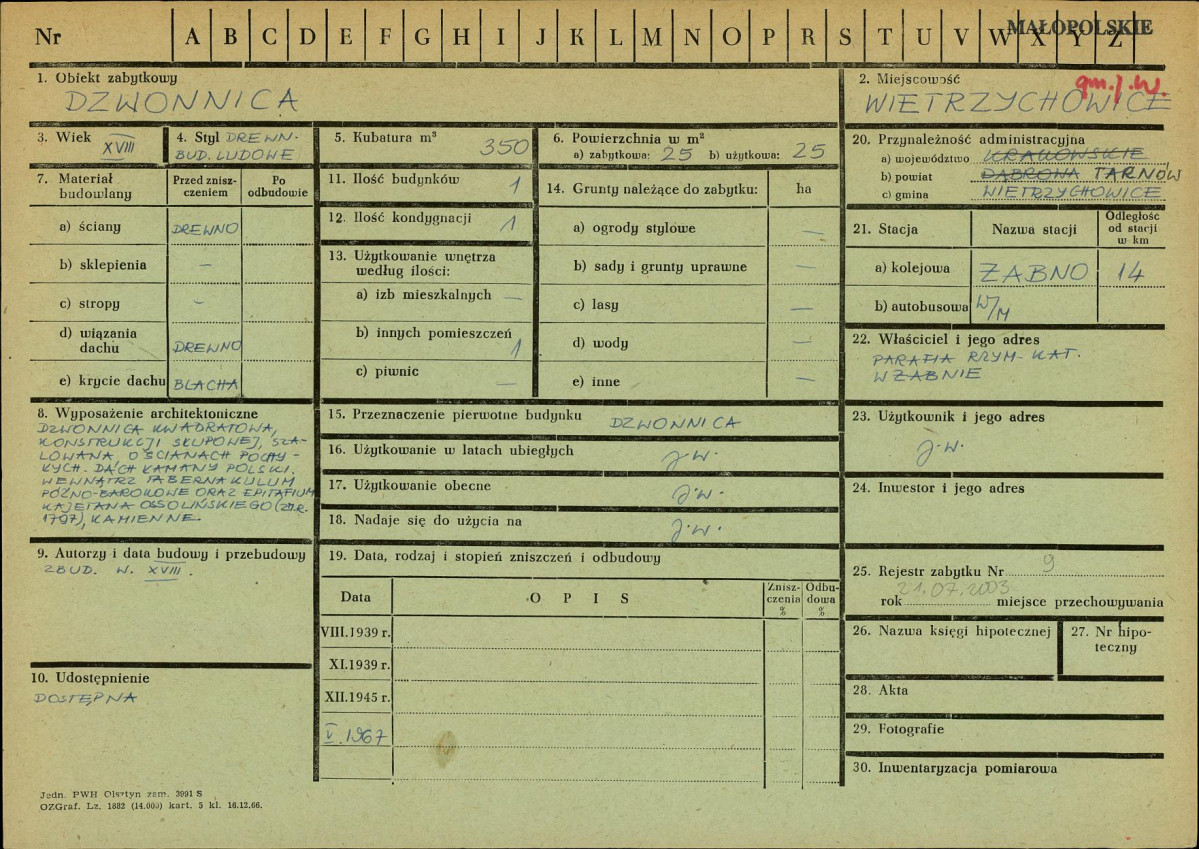 Nr A B C D E F G H I J K L M N O P R S T U V W X Y Z
MAŁOPOLSKIE
1. Obiekt zabytkowy
DZWONNICA
2. Miejscowość
gm. j.w.
WIETRZYCHOWICE
3. Wiek XVIII
4. Styl DREWN.
BUD. LUDOWE
5. Kubatura m³ 350
6. Powierzchnia w m²
a) zabytkowa: 25 b) użytkowa: 25
20. Przynależność administracyjna
a) województwo KRAKOWSKIE
b) powiat DĄBROWA TARNÓW
c) gmina WIETRZYCHOWICE
7. Materiał budowlany
Przed zniszczeniem
Po odbudowie
a) ściany DREWNO
b) sklepienia —
c) stropy —
d) wiązania dachu DREWNO
e) krycie dachu BLACHA
11. Ilość budynków 1
12. Ilość kondygnacji 1
13. Użytkowanie wnętrza
według ilości:
a) izb mieszkalnych —
b) innych pomieszczeń 1
c) piwnic —
14. Grunty należące do zabytku: ha
a) ogrody stylowe —
b) sady i grunty uprawne —
c) lasy —
d) wody —
e) inne —
21. Stacja
Nazwa stacji
Odległość
od stacji
w km
a) kolejowa ŻABNO 14
b) autobusowa W/M
22. Właściciel i jego adres
PARAFIA RZYM-KAT.
W ŻABNIE
8. Wyposażenie architektoniczne
DZWONNICA KWADRATOWA,
KONSTRUKCJI SŁUPOWEJ, SZA-
LOWANA, O ŚCIANACH POCHY-
ŁYCH. DACH ŁAMANY POLSKI.
WEWNĄTRZ TABERNAKULUM
PÓŹNO-BAROKOWE ORAZ EPITAFIUM
KAJETANA OSSOLIŃSKIEGO (ZM.R.
1797), KAMIENNE.
15. Przeznaczenie pierwotne budynku DZWONNICA
16. Użytkowanie w latach ubiegłych j.w.
17. Użytkowanie obecne j.w.
18. Nadaje się do użycia na j.w.
23. Użytkownik i jego adres
j.w.
24. Inwestor i jego adres
9. Autorzy i data budowy i przebudowy
ZBUD. W. XVIII.
19. Data, rodzaj i stopień zniszczeń i odbudowy
Data
OPIS
Znisz-
czenia
%
Odbu-
dowa
%
VIII.1939 r.
XI.1939 r.
XII.1945 r.
V.1967
10. Udostępnienie
DOSTĘPNA
25. Rejestr zabytku Nr 9
21.07.2003
rok miejsce przechowywania
26. Nazwa księgi hipotecznej
27. Nr hipo-
teczny
28. Akta
29. Fotografie
30. Inwentaryzacja pomiarowa
Jedn. PWH Olsztyn zam. 3991 S
OZGraf. Lz. 1882 (14.000) kart. 5 kl. 16.12.66.